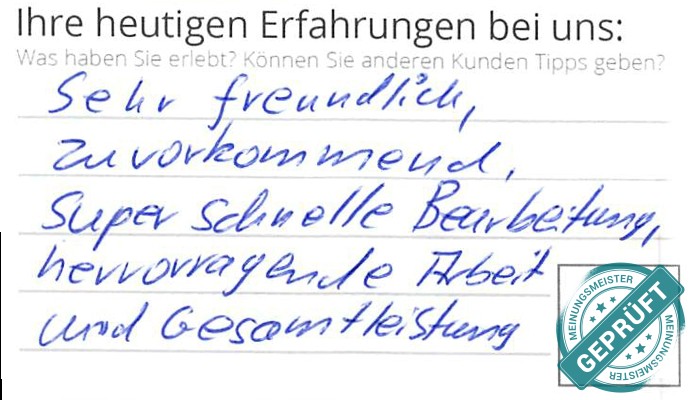 Ihre heutigen Erfahrungen bei uns:
Was haben Sie erlebt? Können Sie anderen Kunden Tipps geben?
Sehr freundlich,
zuvorkommend,
Super schnelle Bearbeitung,
hervorragende Arbeit
und Gesamtleistung
MEINUNGSMEISTER
GEPRÜFT
MEINUNGSMEISTER
MEINUNGSMEISTER